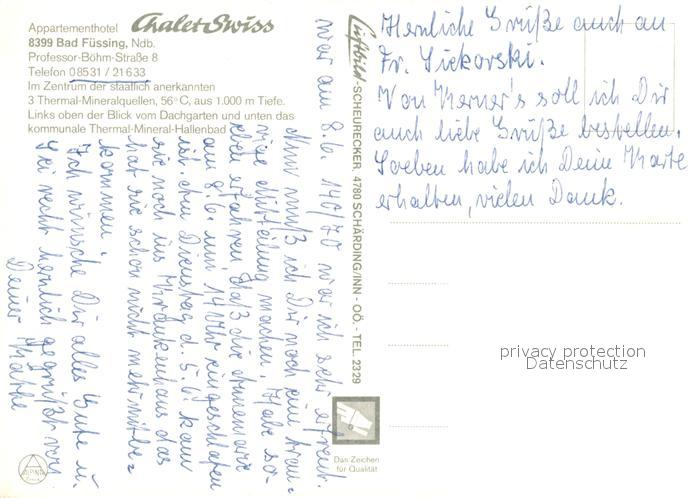 Appartementhotel Chalet Swiss
8399 Bad Füssing, Ndb.
Professor-Böhm-Straße 8
Telefon 08531 / 21633
Im Zentrum der staatlich anerkannten
3 Thermal-Mineralquellen, 56°C, aus 1.000 m Tiefe.
Links oben der Blick vom Dachgarten und unten das
kommunale Thermal-Mineral-Hallenbad
war am 8.6. 140/70 war ich sehr erfreut.
Nun muß ich Dir noch eine trau=
rige Mitteilung machen, Habe so=
eben erfahren daß die Annemarie
am 8.6. um 14 Uhr eingeschlafen
ist. Am Dienstag d. 5.6. kam
sie noch ins Krankenhaus das
hat sie schon nicht mehr mitbe=
kommen.
Ich wünsche Dir alles Gute u.
Sei recht herzlich gegrüßt von
Deiner Käthe
Luftbild-SCHEURECKER, 4780 SCHÄRDING/INN - OÖ. - TEL. 2329
Herzliche Grüße auch an
Fr. Siekorski.
Von Werner's soll ich Dir
auch liebe Grüße bestellen.
Soeben habe ich Deine Karte
erhalten, vielen Dank.
privacy protection
Datenschutz
Das Zeichen
für Qualität
ALPINA